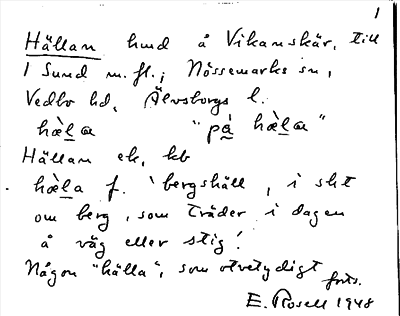 1
Hällan hmd å Vikanskär, till
1 Sund m. fl.; Nössemarks sn,
Vedbo hd, Älvsborgs l.
hæ̀la "pá hæ̀la"
Hällan ek, kb
hæ̀la f. 'bergshäll, i sht
om berg, som träder i dagen
å väg eller stig'.
Någon "hälla", som otvetydigt
forts.
E. Rosell 1948